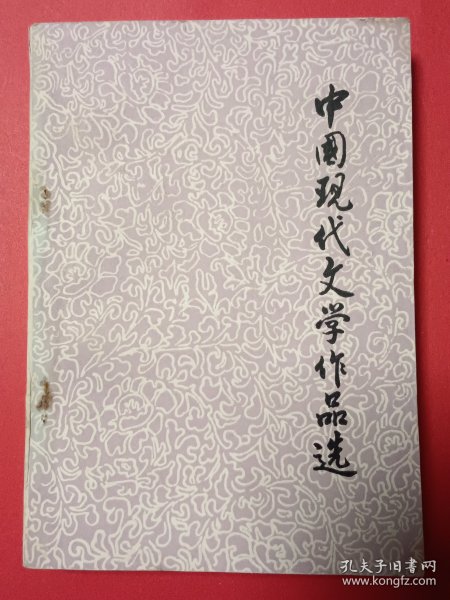 中国现代文学作品选
孔夫子旧书网
www.kongfz.com